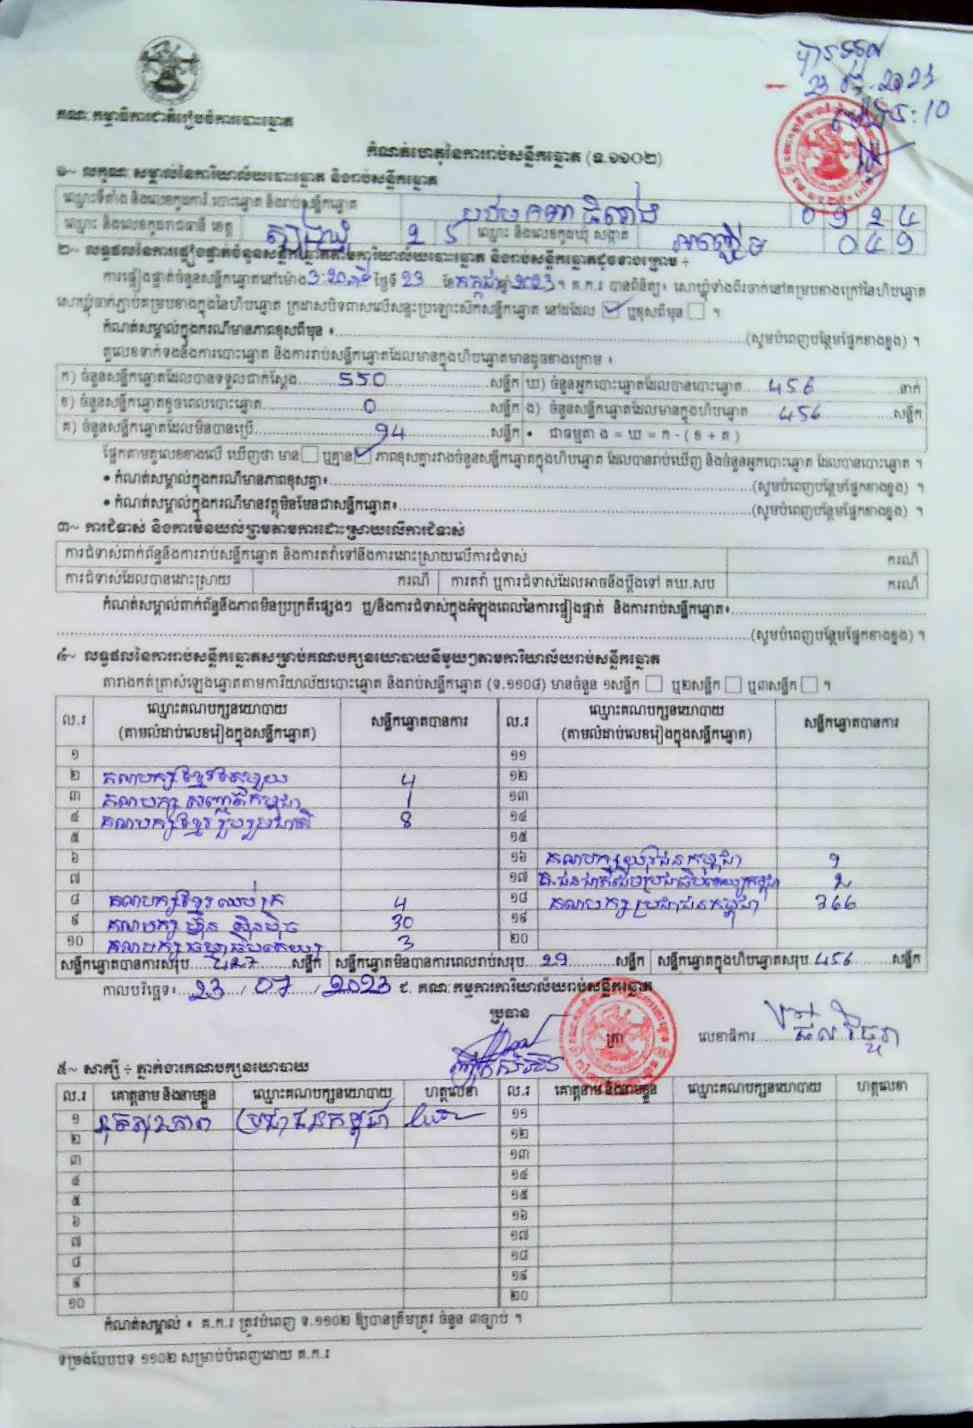 បានទទួល
23 07 2023
ម៉ោង: 10
គណៈកម្មាធិការជាតិរៀបចំការបោះឆ្នោត
កំណត់ហេតុនៃការរាប់សន្លឹកឆ្នោត (ទ.១១០២)
១~ លក្ខណៈសម្គាល់នៃការិយាល័យបោះឆ្នោត និងរាប់សន្លឹកឆ្នោត
ឈ្មោះទីតាំង និងលេខកូដការិ.បោះឆ្នោត និងរាប់សន្លឹកឆ្នោត 0924
ឈ្មោះ និងលេខកូដរាជធានី ខេត្ត 25 ឈ្មោះ និងលេខកូដឃុំ សង្កាត់ 049
២~ លទ្ធផលនៃការផ្ទៀងផ្ទាត់ចំនួនសន្លឹកឆ្នោតតាមការិយាល័យបោះឆ្នោត និងរាប់សន្លឹកឆ្នោតដូចខាងក្រោម ÷
ការផ្ទៀងផ្ទាត់ចំនួនសន្លឹកឆ្នោតនៅម៉ោង 3:20 ថ្ងៃទី 23 ខែ កក្កដា ឆ្នាំ 2023។ គ.ក.រ បានពិនិត្យ៖ សោឃ្លុំទាំងពីរចាក់នៅគម្របខាងក្រៅនៃហិបឆ្នោត
សោឃ្លុំចាក់ភ្ជាប់គម្របខាងក្នុងនៃហិបឆ្នោត ក្រដាសបិទពាសលើសន្ទះប្រឡោះស៊កសន្លឹកឆ្នោត នៅដដែល ☑ ឬខុសពីមុន ☐ ។
កំណត់សម្គាល់ក្នុងករណីមានភាពខុសពីមុន ៖ (សូមបំពេញបន្ថែមផ្នែកខាងខ្នង) ។
តួលេខទាក់ទងនឹងការបោះឆ្នោត និងការរាប់សន្លឹកឆ្នោតដែលមានក្នុងហិបឆ្នោតមានដូចខាងក្រោម ៖
ក) ចំនួនសន្លឹកឆ្នោតដែលបានទទួលជាក់ស្តែង 550 សន្លឹក ឃ) ចំនួនអ្នកបោះឆ្នោតដែលបានបោះឆ្នោត 456 នាក់
ខ) ចំនួនសន្លឹកឆ្នោតខូចពេលបោះឆ្នោត 0 សន្លឹក ង) ចំនួនសន្លឹកឆ្នោតដែលមានក្នុងហិបឆ្នោត 456 សន្លឹក
គ) ចំនួនសន្លឹកឆ្នោតដែលមិនបានប្រើ 94 សន្លឹក • ជាធម្មតា ង = ឃ = ក - ( ខ + គ )
ផ្អែកតាមតួលេខខាងលើ ឃើញថា មាន ☐ ឬគ្មាន ☑ ភាពខុសគ្នារវាងចំនួនសន្លឹកឆ្នោតក្នុងហិបឆ្នោត ដែលបានរាប់ឃើញ និងចំនួនអ្នកបោះឆ្នោត ដែលបានបោះឆ្នោត ។
• កំណត់សម្គាល់ក្នុងករណីមានភាពខុសគ្នា៖ (សូមបំពេញបន្ថែមផ្នែកខាងខ្នង) ។
• កំណត់សម្គាល់ក្នុងករណីមានវត្ថុមិនមែនជាសន្លឹកឆ្នោត៖ (សូមបំពេញបន្ថែមផ្នែកខាងខ្នង) ។
៣~ ការជំទាស់ និងការមិនយល់ព្រមតាមការដោះស្រាយលើការជំទាស់
ការជំទាស់ពាក់ព័ន្ធនឹងការរាប់សន្លឹកឆ្នោត និងការតវ៉ាទៅនឹងការដោះស្រាយលើការជំទាស់ ករណី
ការជំទាស់ដែលបានដោះស្រាយ ករណី ការតវ៉ា ឬការជំទាស់ដែលអាចនឹងប្តឹងទៅ គឃ.សប ករណី
កំណត់សម្គាល់ពាក់ព័ន្ធនឹងភាពមិនប្រក្រតីផ្សេងៗ ឬ/និងការជំទាស់ក្នុងអំឡុងពេលនៃការផ្ទៀងផ្ទាត់ និងការរាប់សន្លឹកឆ្នោត៖
(សូមបំពេញបន្ថែមផ្នែកខាងខ្នង) ។
៤~ លទ្ធផលនៃការរាប់សន្លឹកឆ្នោតសម្រាប់គណបក្សនយោបាយនីមួយៗតាមការិយាល័យរាប់សន្លឹកឆ្នោត
តារាងកត់ត្រាសំឡេងឆ្នោតតាមការិយាល័យបោះឆ្នោត និងរាប់សន្លឹកឆ្នោត (ទ.១១០៨) មានចំនួន ១សន្លឹក ☐ ឬ២សន្លឹក ☐ ឬ៣សន្លឹក ☐ ។
ល.រ ឈ្មោះគណបក្សនយោបាយ (តាមលំដាប់លេខរៀងក្នុងសន្លឹកឆ្នោត) សន្លឹកឆ្នោតបានការ ល.រ ឈ្មោះគណបក្សនយោបាយ (តាមលំដាប់លេខរៀងក្នុងសន្លឹកឆ្នោត) សន្លឹកឆ្នោតបានការ
១ ១១
២ គណបក្សខ្មែរតែមួយ 4 ១២
៣ គណបក្ស សញ្ជាតិកម្ពុជា 1 ១៣
៤ គណបក្សខ្មែររួបរួមជាតិ 8 ១៤
៥ ១៥
៦ ១៦ គណបក្សយុវជនកម្ពុជា
៧ ១៧ 2
៨ គណបក្សខ្មែរឈប់ក្រ 4 ១៨ គណបក្សប្រជាជនកម្ពុជា 366
៩ គណបក្ស ហ៊្វុនស៊ិនប៉ិច 30 ១៩
១០ គណបក្សធម្មាធិបតេយ្យ 3 ២០
សន្លឹកឆ្នោតបានការសរុប 427 សន្លឹក សន្លឹកឆ្នោតមិនបានការពេលរាប់សរុប 29 សន្លឹក សន្លឹកឆ្នោតក្នុងហិបឆ្នោតសរុប 456 សន្លឹក
កាលបរិច្ឆេទ៖ 23 / 07 / 2023 ជ. គណៈកម្មការការិយាល័យរាប់សន្លឹកឆ្នោត
ប្រធាន
ត្រា លេខាធិការ
៥~ សាក្សី ÷ ភ្នាក់ងារគណបក្សនយោបាយ
ល.រ គោត្តនាម និងនាមខ្លួន ឈ្មោះគណបក្សនយោបាយ ហត្ថលេខា ល.រ គោត្តនាម និងនាមខ្លួន ឈ្មោះគណបក្សនយោបាយ ហត្ថលេខា
១ ប្រជាជនកម្ពុជា ១១
២ ១២
៣ ១៣
៤ ១៤
៥ ១៥
៦ ១៦
៧ ១៧
៨ ១៨
៩ ១៩
១០ ២០
កំណត់សម្គាល់ ៖ គ.ក.រ ត្រូវបំពេញ ទ.១១០២ ឱ្យបានត្រឹមត្រូវ ចំនួន ៣ច្បាប់ ។
ទម្រង់បែបបទ ១១០២ សម្រាប់បំពេញដោយ គ.ក.រ